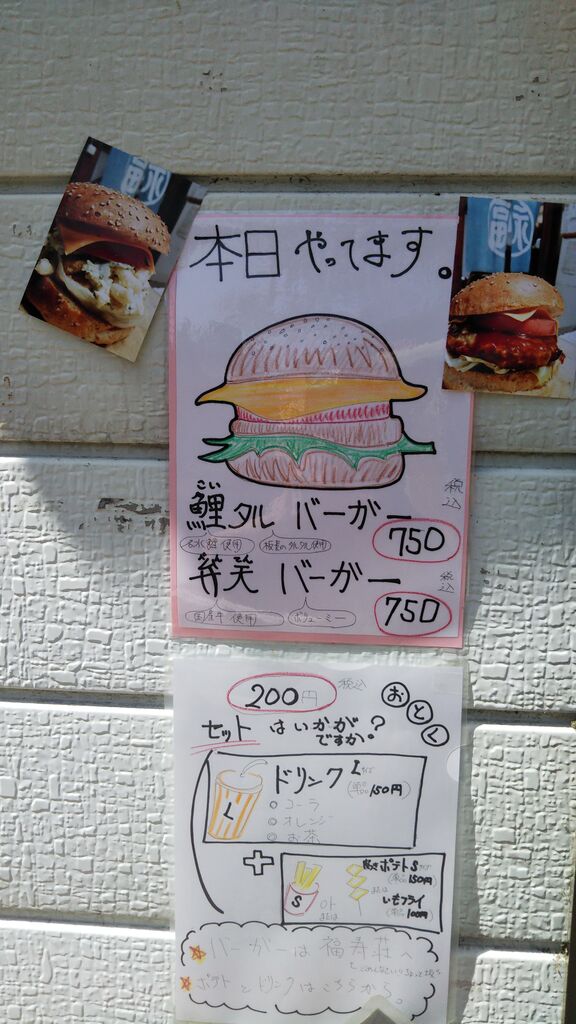 本日 やってます。
こい
鯉タル バーガー
税込
750
名水鯉 使用
板長のタルタル使用
バーガー
税込
750
国産牛 使用
ボリューミー
200円 税込
おとく
セット はいかが
ですか?
ドリンク Lサイズ
(単品150円)
L
◎ コーラ
◎ オレンジ
◎ お茶
+
ポテトSサイズ
(単品150円)
または
いもフライ
(単品100円)
S
または
バーガーは 福寿荘へ
ポテト と ドリンクは こちらから。